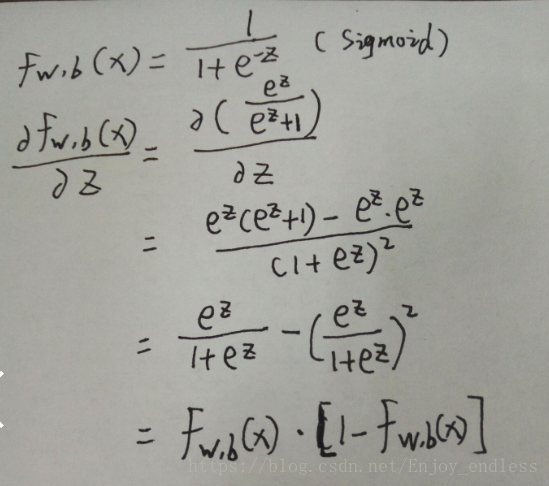 f_{w,b}(x) = \frac{1}{1+e^{-z}} (sigmoid)
\frac{∂f_{w,b}(x)}{∂z} = \frac{∂(\frac{e^z}{e^z+1})}{∂z}
= \frac{e^z(e^z+1) - e^z·e^z}{(1+e^z)^2}
= \frac{e^z}{1+e^z} - (\frac{e^z}{1+e^z})^2
= f_{w,b}(x) · [1-f_{w,b}(x)]
https://blog.csdn.net/Enjoy_endless